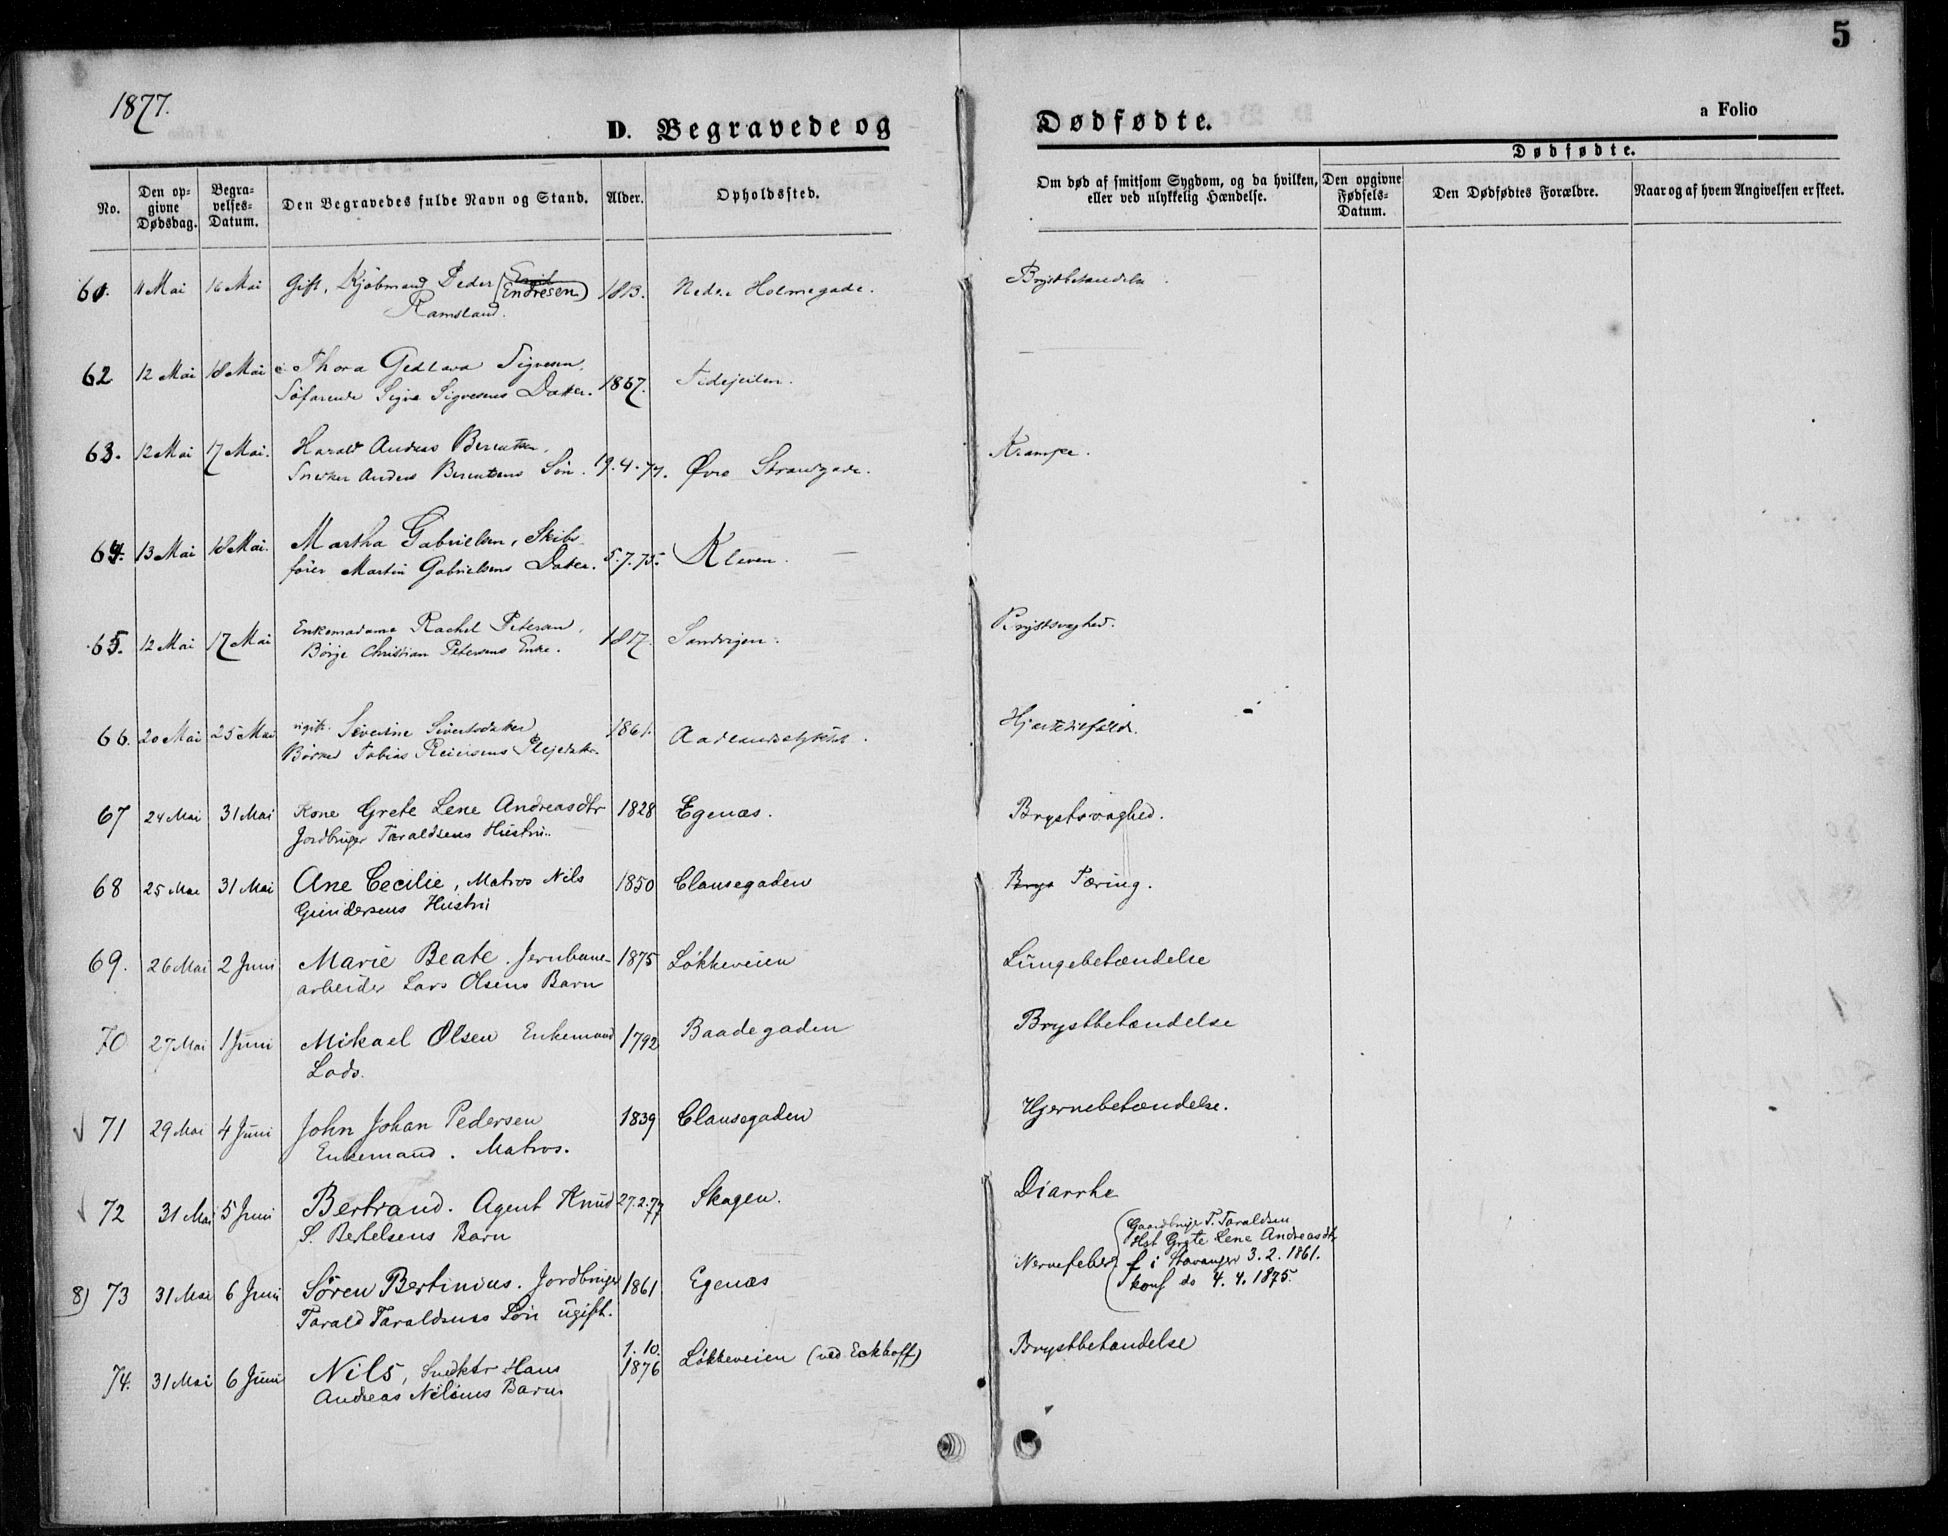 5
1877.
a Folio
D. Begravede og Dødfødte.
Dødfødte.
No.
Den opgivne Dødsdag.
Begravelses-Datum.
Den Begravedes fulde Navn og Stand.
Alder.
Opholdssted.
Om død af smitsom Sygdom, og da hvilken, eller ved ulykkelig Hændelse.
Den opgivne Fødsels-Datum.
Den Dødfødtes Forældre.
Naar og af hvem Angivelsen er skeet.
61. 11 Mai 16 Mai Gift, Kjøbmand Peder (Endresen) 1813. Nedre Holmegade. Brystbetændelse
Ramsland.
62 12 Mai 18 Mai Thora Sigvesen, 1867.
Søfarende Sigve Sigvesens Datter.
63. 12 Mai 17 Mai. Harald Andreas Berentsen, 19.4.77. Øvre Strandgade. Krampe.
Snedker Anders Berentsens Søn.
64. 13 Mai 18 Mai. Martha Gabrielsen, Skibs- 5.7.75. Kleven. —
fører Martin Gabrielsens Datter.
65. 12 Mai 17 Mai Enkemadame Rachel Petersen, 1817. Sandvigen. Brystsvaghed.
Børge Christian Petersens Enke.
66. 20 Mai 25 Mai ugift. Severine Sivertsdatter 1861. Aadlandsstykket. Hjertetilfælde.
Tobias Reiersens Plejedatter
67 24 Mai 31 Mai Kone Grete Lene Andreasdtr 1828 Egenæs. Brystsvaghed.
Jordbruger Taraldsens Hustru.
68 25 Mai 31 Mai Ane Cecilie, Matros Nils 1850 Clausegaden Brys Tæring.
Gundersens Hustru
69. 26 Mai 2 Juni Marie Beate. Jernbane- 1875 Løkkeveien Lungebetændelse
arbeider Lars Olsens Barn
70 27 Mai 1 Juni Mikael Olsen Enkemand 1792 Baadegaden Brystbetændelse
Lods.
71 29 Mai 4 Juni John Johan Pedersen 1839 Clausegaden Hjernebetændelse.
Enkemand. Matros.
72 31 Mai 5 Juni Bertrand. Agent Knud 27.2.77 Skagen. Diarrhe
S. Bertelsens Barn
8) 73 31 Mai 6 Juni Sören Bertinius. Jordbruger 1861 Egenæs Nervefeber
Tarald Taraldsens Søn ugift.
(Gaardbruger T. Taraldsen
Hst Grete Lene Andreasdtr
f i Stavanger 3.2.1861.
konf do 4.4.1875.
74. 31 Mai 6 Juni Nils, Snedker Hans 1.10. 1876 Løkkeveien (ved Eckhoff) Brystbetændelse
Andreas Nilsens Barn